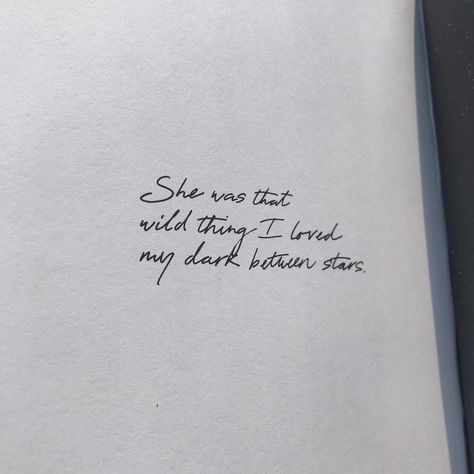 She was that
wild thing I loved
my dark between stars.